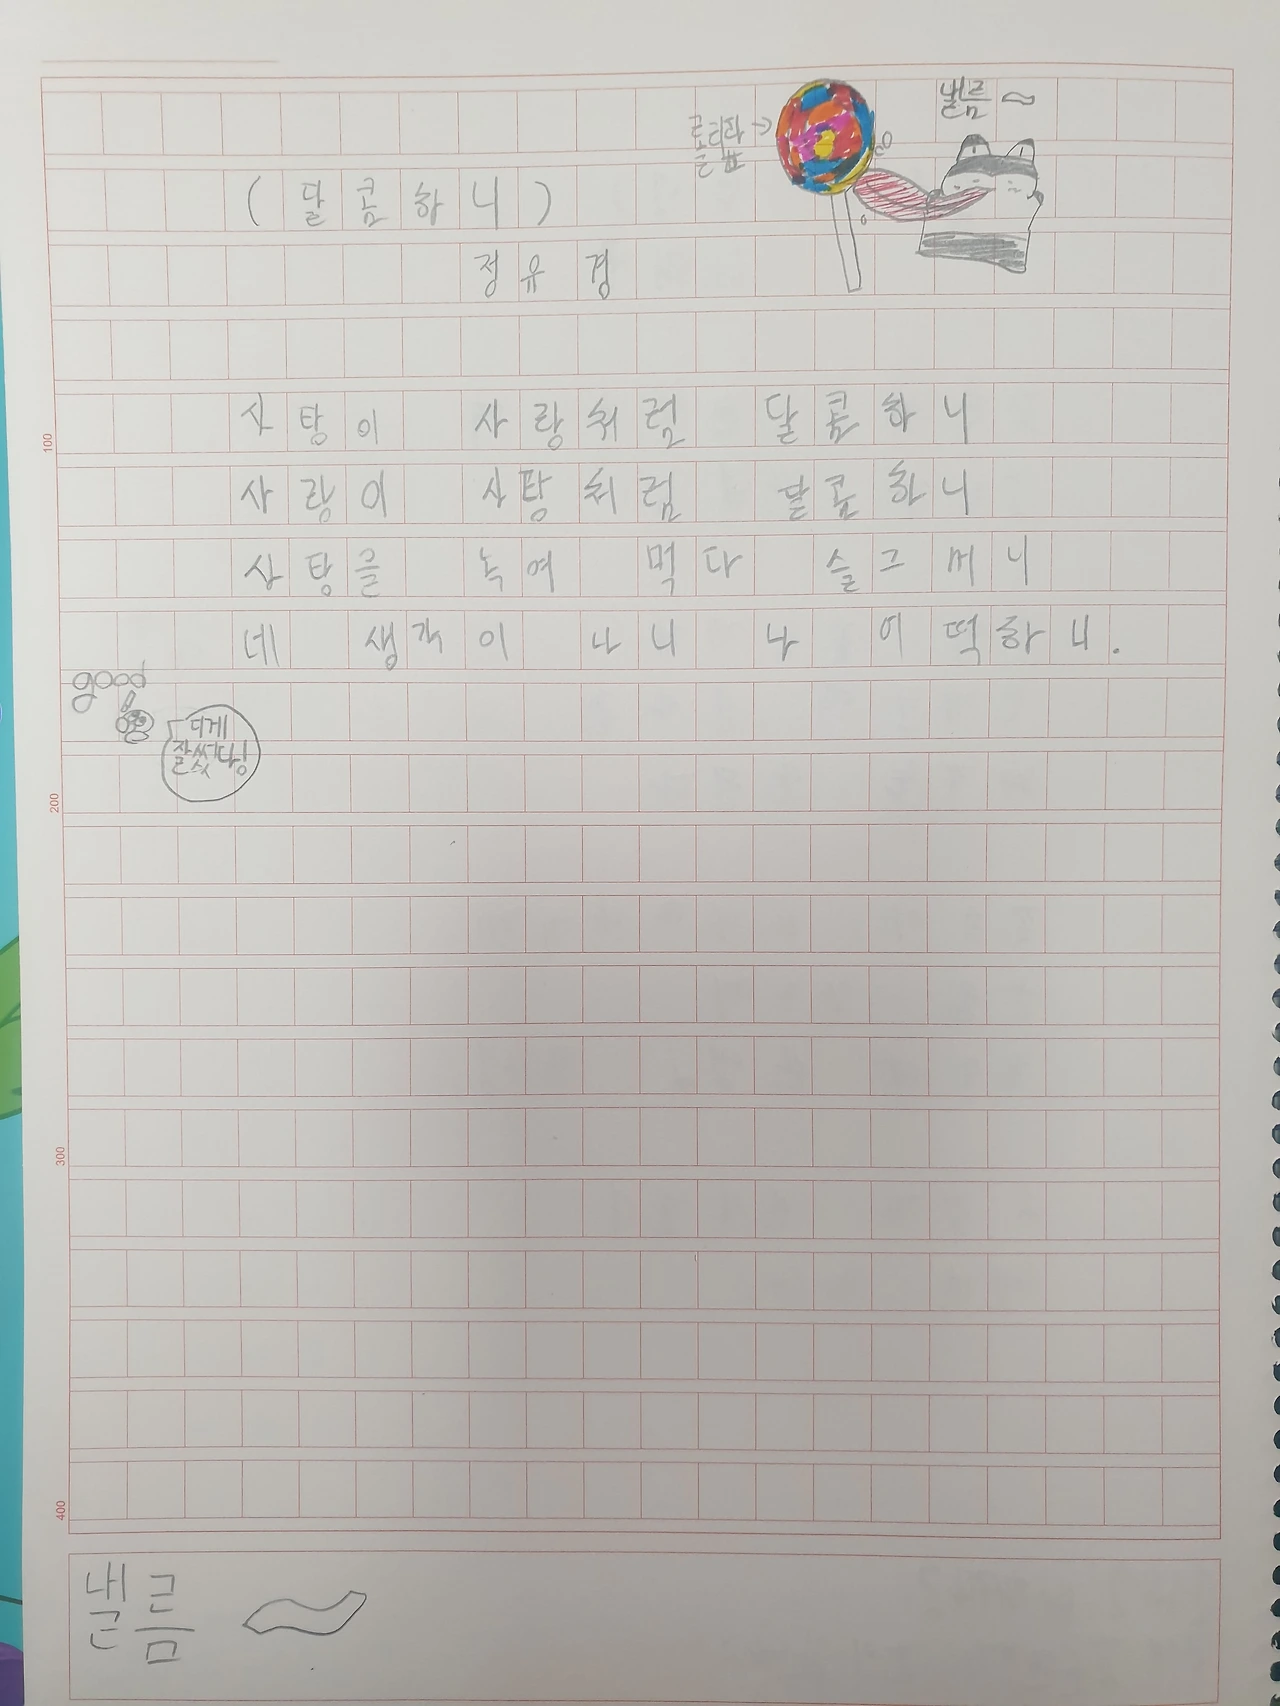 낼름~
( 달콤하니 )
정유경
사탕이 사랑처럼 달콤하니
사랑이 사탕처럼 달콤하니
사탕을 녹여 먹다 슬그머니
네 생각이 나니 나 어떡하니.
good
디게
잘썻다!
100
200
300
400
낼름 ~